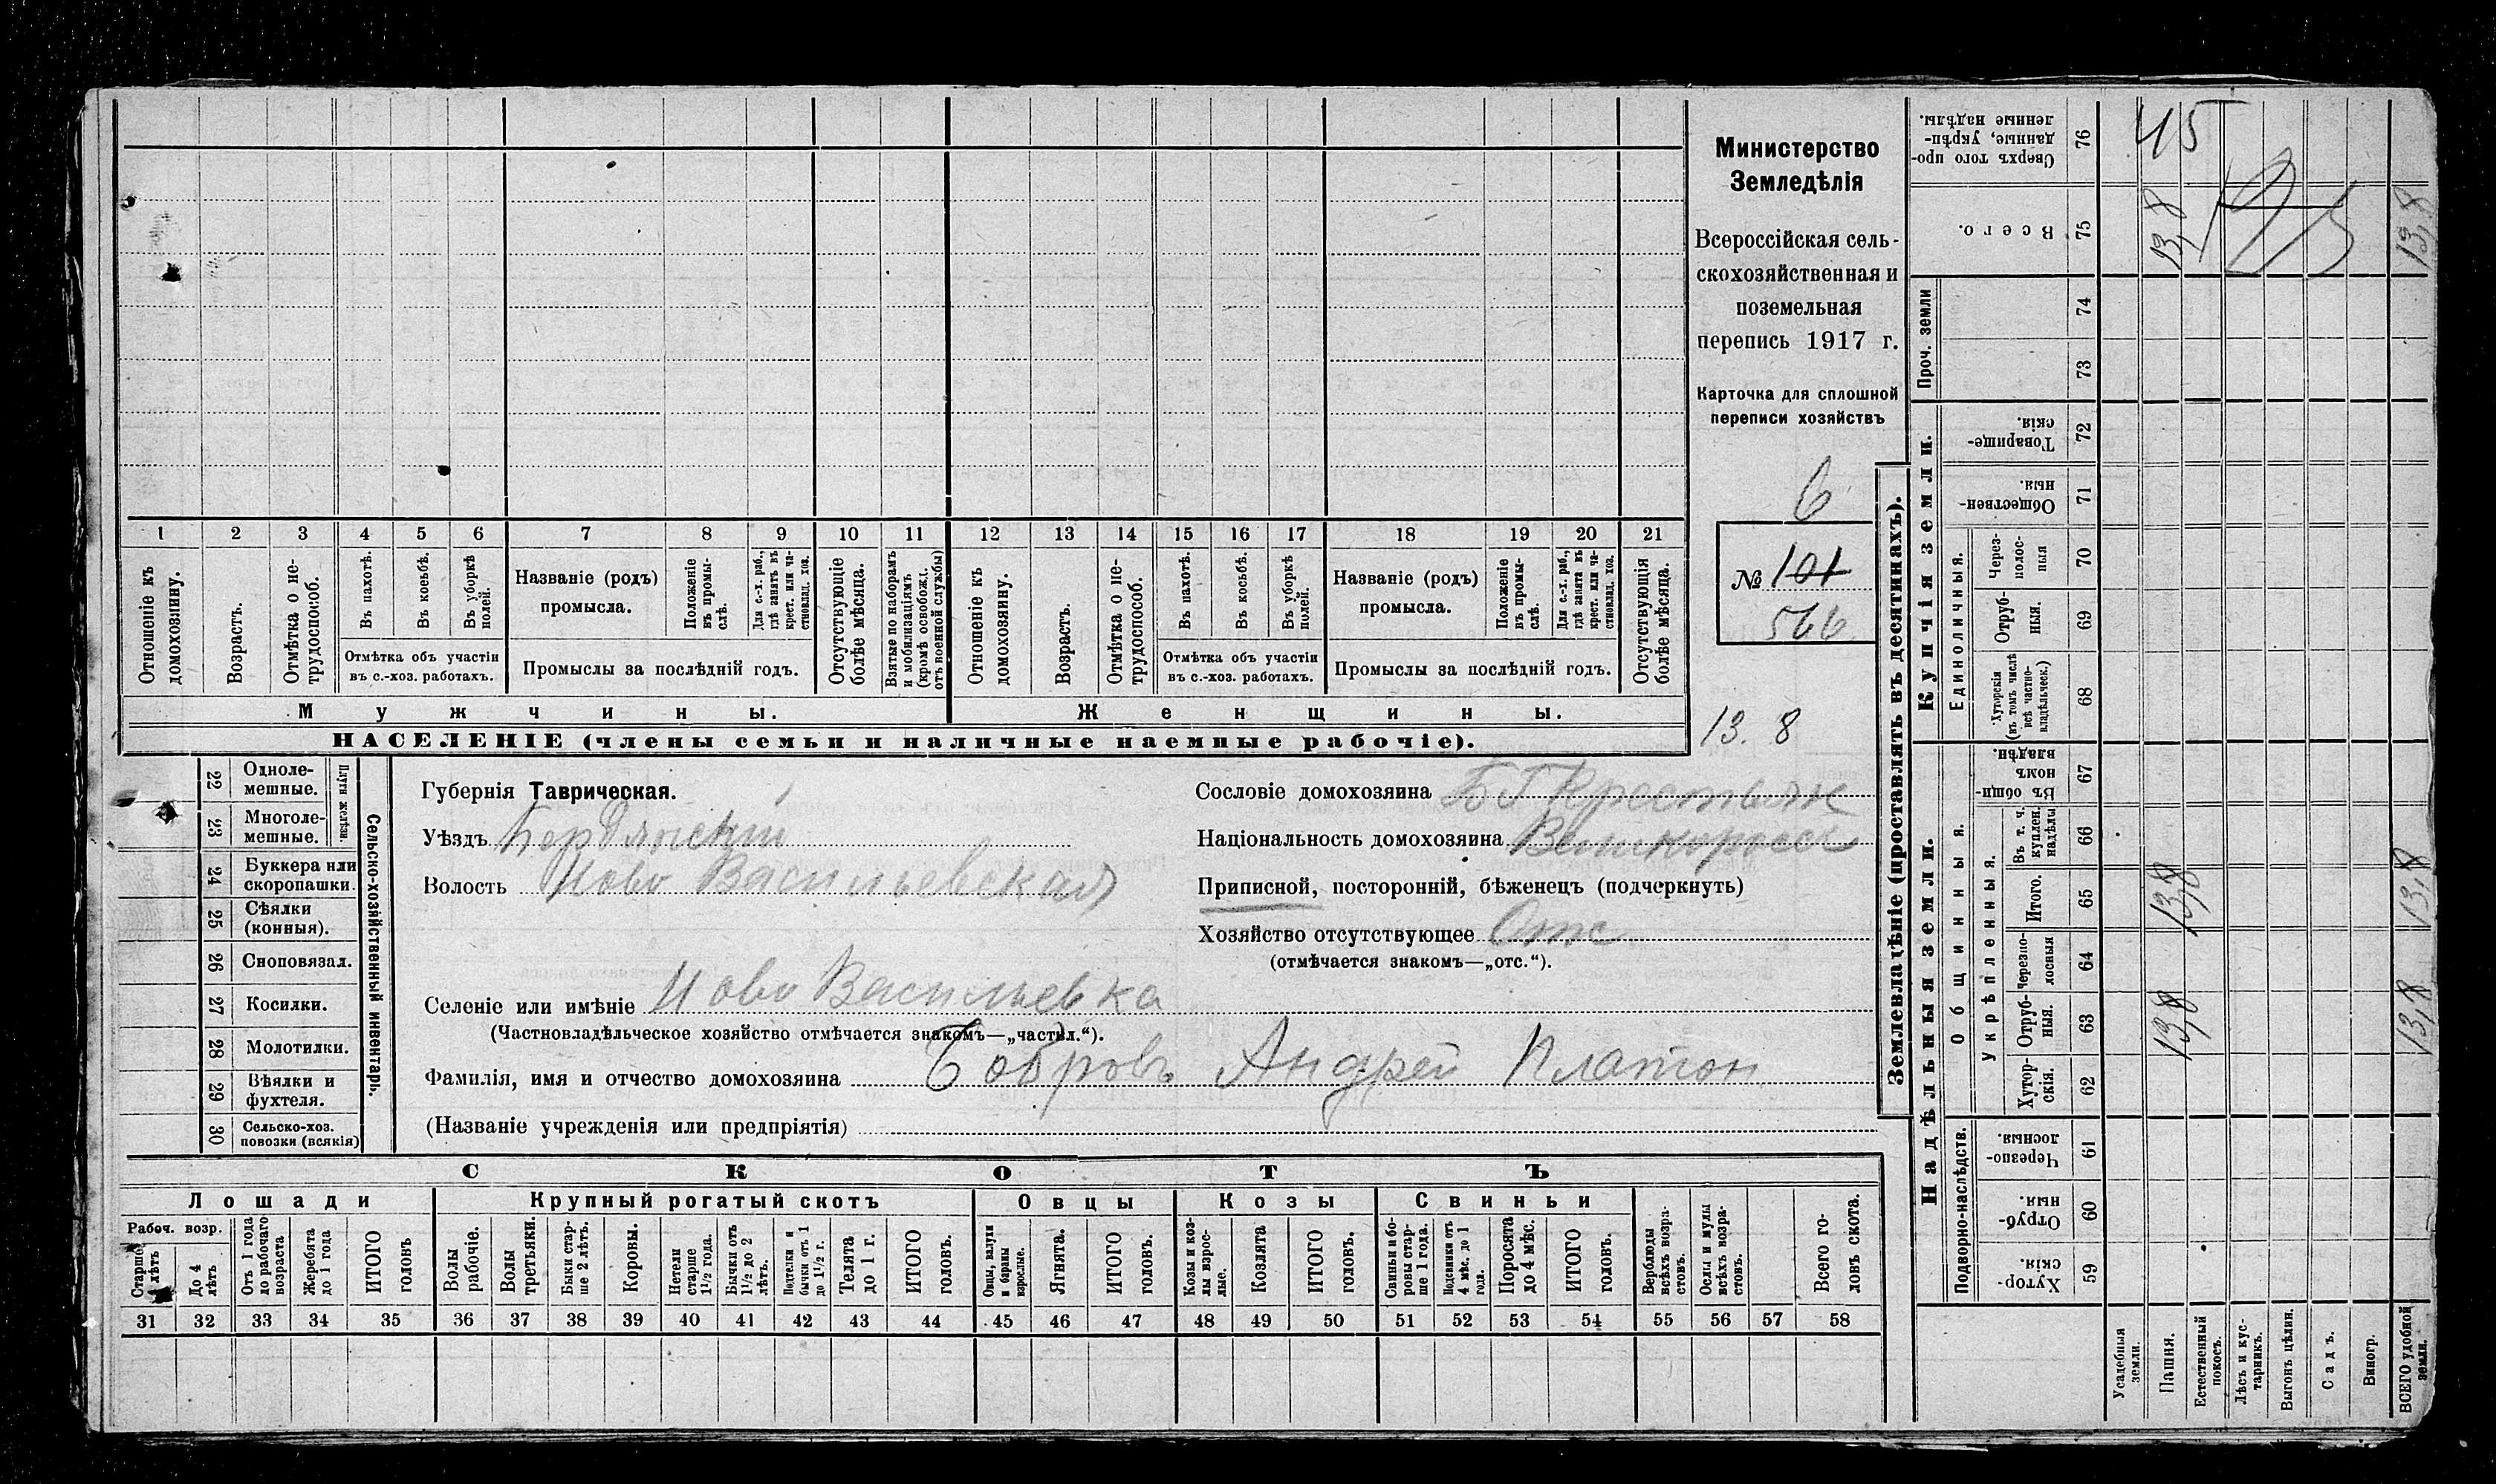 Министерство
Земледѣлія
Всероссійская сель-
скохозяйственная и
поземельная
перепись 1917 г.
Карточка для сплошной
переписи хозяйствъ
6
№ 101
566
13. 8
1 2 3 4 5 6 7 8 9 10 11 12 13 14 15 16 17 18 19 20 21
Отношеніе къ домохозяину.
Возрастъ.
Отмѣтка о не-трудоспособ.
Въ пахотѣ.
Въ косьбѣ.
Въ уборкѣ полей.
Отмѣтка объ участіи
въ с.-хоз. работахъ.
Названіе (родъ)
промысла.
Положеніе въ промы-слѣ.
Для с.-х. раб., гдѣ занятъ въ крест. или ча-стновлад. хоз.
Промыслы за послѣдній годъ.
Отсутствующіе болѣе мѣсяца.
Взятые по наборамъ и мобилизаціямъ (кромѣ освобожд. отъ военной службы)
Отношеніе къ домохозяину.
Возрастъ.
Отмѣтка о не-трудоспособ.
Въ пахотѣ.
Въ косьбѣ.
Въ уборкѣ полей.
Отмѣтка объ участіи
въ с.-хоз. работахъ.
Названіе (родъ)
промысла.
Положеніе въ промы-слѣ.
Для с.-х. раб., гдѣ занята въ крест. или ча-стновлад. хоз.
Промыслы за послѣдній годъ.
Отсутствующія болѣе мѣсяца.
Мужчины.
Женщины.
НАСЕЛЕНІЕ (члены семьи и наличные наемные рабочіе).
22 Одноле-мешные.
23 Многоле-мешные.
Плуги желѣзн.
24 Буккера или скоропашки.
25 Сѣялки (конныя).
26 Сноповязал.
27 Косилки.
28 Молотилки.
29 Вѣялки и фухтеля.
30 Сельско-хоз. повозки (всякія)
Сельско-хозяйственный инвентарь.
Губернія Таврическая.
Уѣздъ Бердянскій
Волость Ново Васильевская
Селеніе или имѣніе Ново Васильевка
(Частновладѣльческое хозяйство отмѣчается знакомъ—„частвл.“).
Фамилія, имя и отчество домохозяина Бобровъ Андрей Платон
(Названіе учрежденія или предпріятія)
Сословіе домохозяина БГ Крестьян
Національность домохозяина Великороссъ
Приписной, посторонній, бѣженецъ (подчеркнуть)
Хозяйство отсутствующее Отс
(отмѣчается знакомъ—„отс.“).
СКОТЪ
Лошади
Крупный рогатый скотъ
Овцы
Козы
Свиньи
Рабоч. возр.
Старше 4 лѣтъ
До 4 лѣтъ
Отъ 1 года до рабочаго возраста
Жеребята до 1 года
ИТОГО головъ
Волы рабочіе.
Волы третьяки.
Быки стар-ше 2 лѣтъ.
Коровы.
Нетели старше 1½ года.
Бычки отъ 1½ до 2 лѣтъ.
Подтелки и бычки отъ 1 до 1½ г.
Телята до 1 г.
ИТОГО головъ.
Овцы, валухи и бараны взрослые.
Ягнята.
ИТОГО головъ.
Козы и коз-лы взрос-лые.
Козлята
ИТОГО головъ.
Свиньи и бо-ровы стар-ше 1 года.
Подсвинки отъ 4 мѣс. до 1 года.
Поросята до 4 мѣс.
ИТОГО головъ.
Верблюды всѣхъ возра-стовъ.
Ослы и мулы всѣхъ возра-стовъ.
Всего го-ловъ скота.
31 32 33 34 35 36 37 38 39 40 41 42 43 44 45 46 47 48 49 50 51 52 53 54 55 56 57 58
Землевладѣніе (проставлять въ десятинахъ).
Купчія земли.
Надѣльныя земли.
Сверхъ того про-данные, укрѣп-ленные надѣлы. 76
45
Всего. 75
13,8
13,8
Проч. земли
74
73
Товарище-скія. 72
Обществен-ныя. 71
Единоличныя.
Через-полос-ныя 70
Отруб-ныя. 69
Хуторскія (въ томъ числѣ всѣ частно-владѣльческ.) 68
Общинныя.
Въ общи-номъ владѣн. 67
Укрѣпленныя.
Въ т. ч. куплен. надѣлы 66
Итого. 65
13,8
13,8
Черезпо-лосныя 64
Отруб-ныя. 63
13,8
13,8
Хутор-скія. 62
Подворно-наслѣдств.
Черезпо-лосныя. 61
Отруб-ныя. 60
Хутор-скія. 59
Усадебныя земли.
Пашня.
Естественный покосъ.
Лѣсъ и кус-тарникъ.
Выгонъ цѣлин.
Садъ.
Виногр.
ВСЕГО удобной земли.